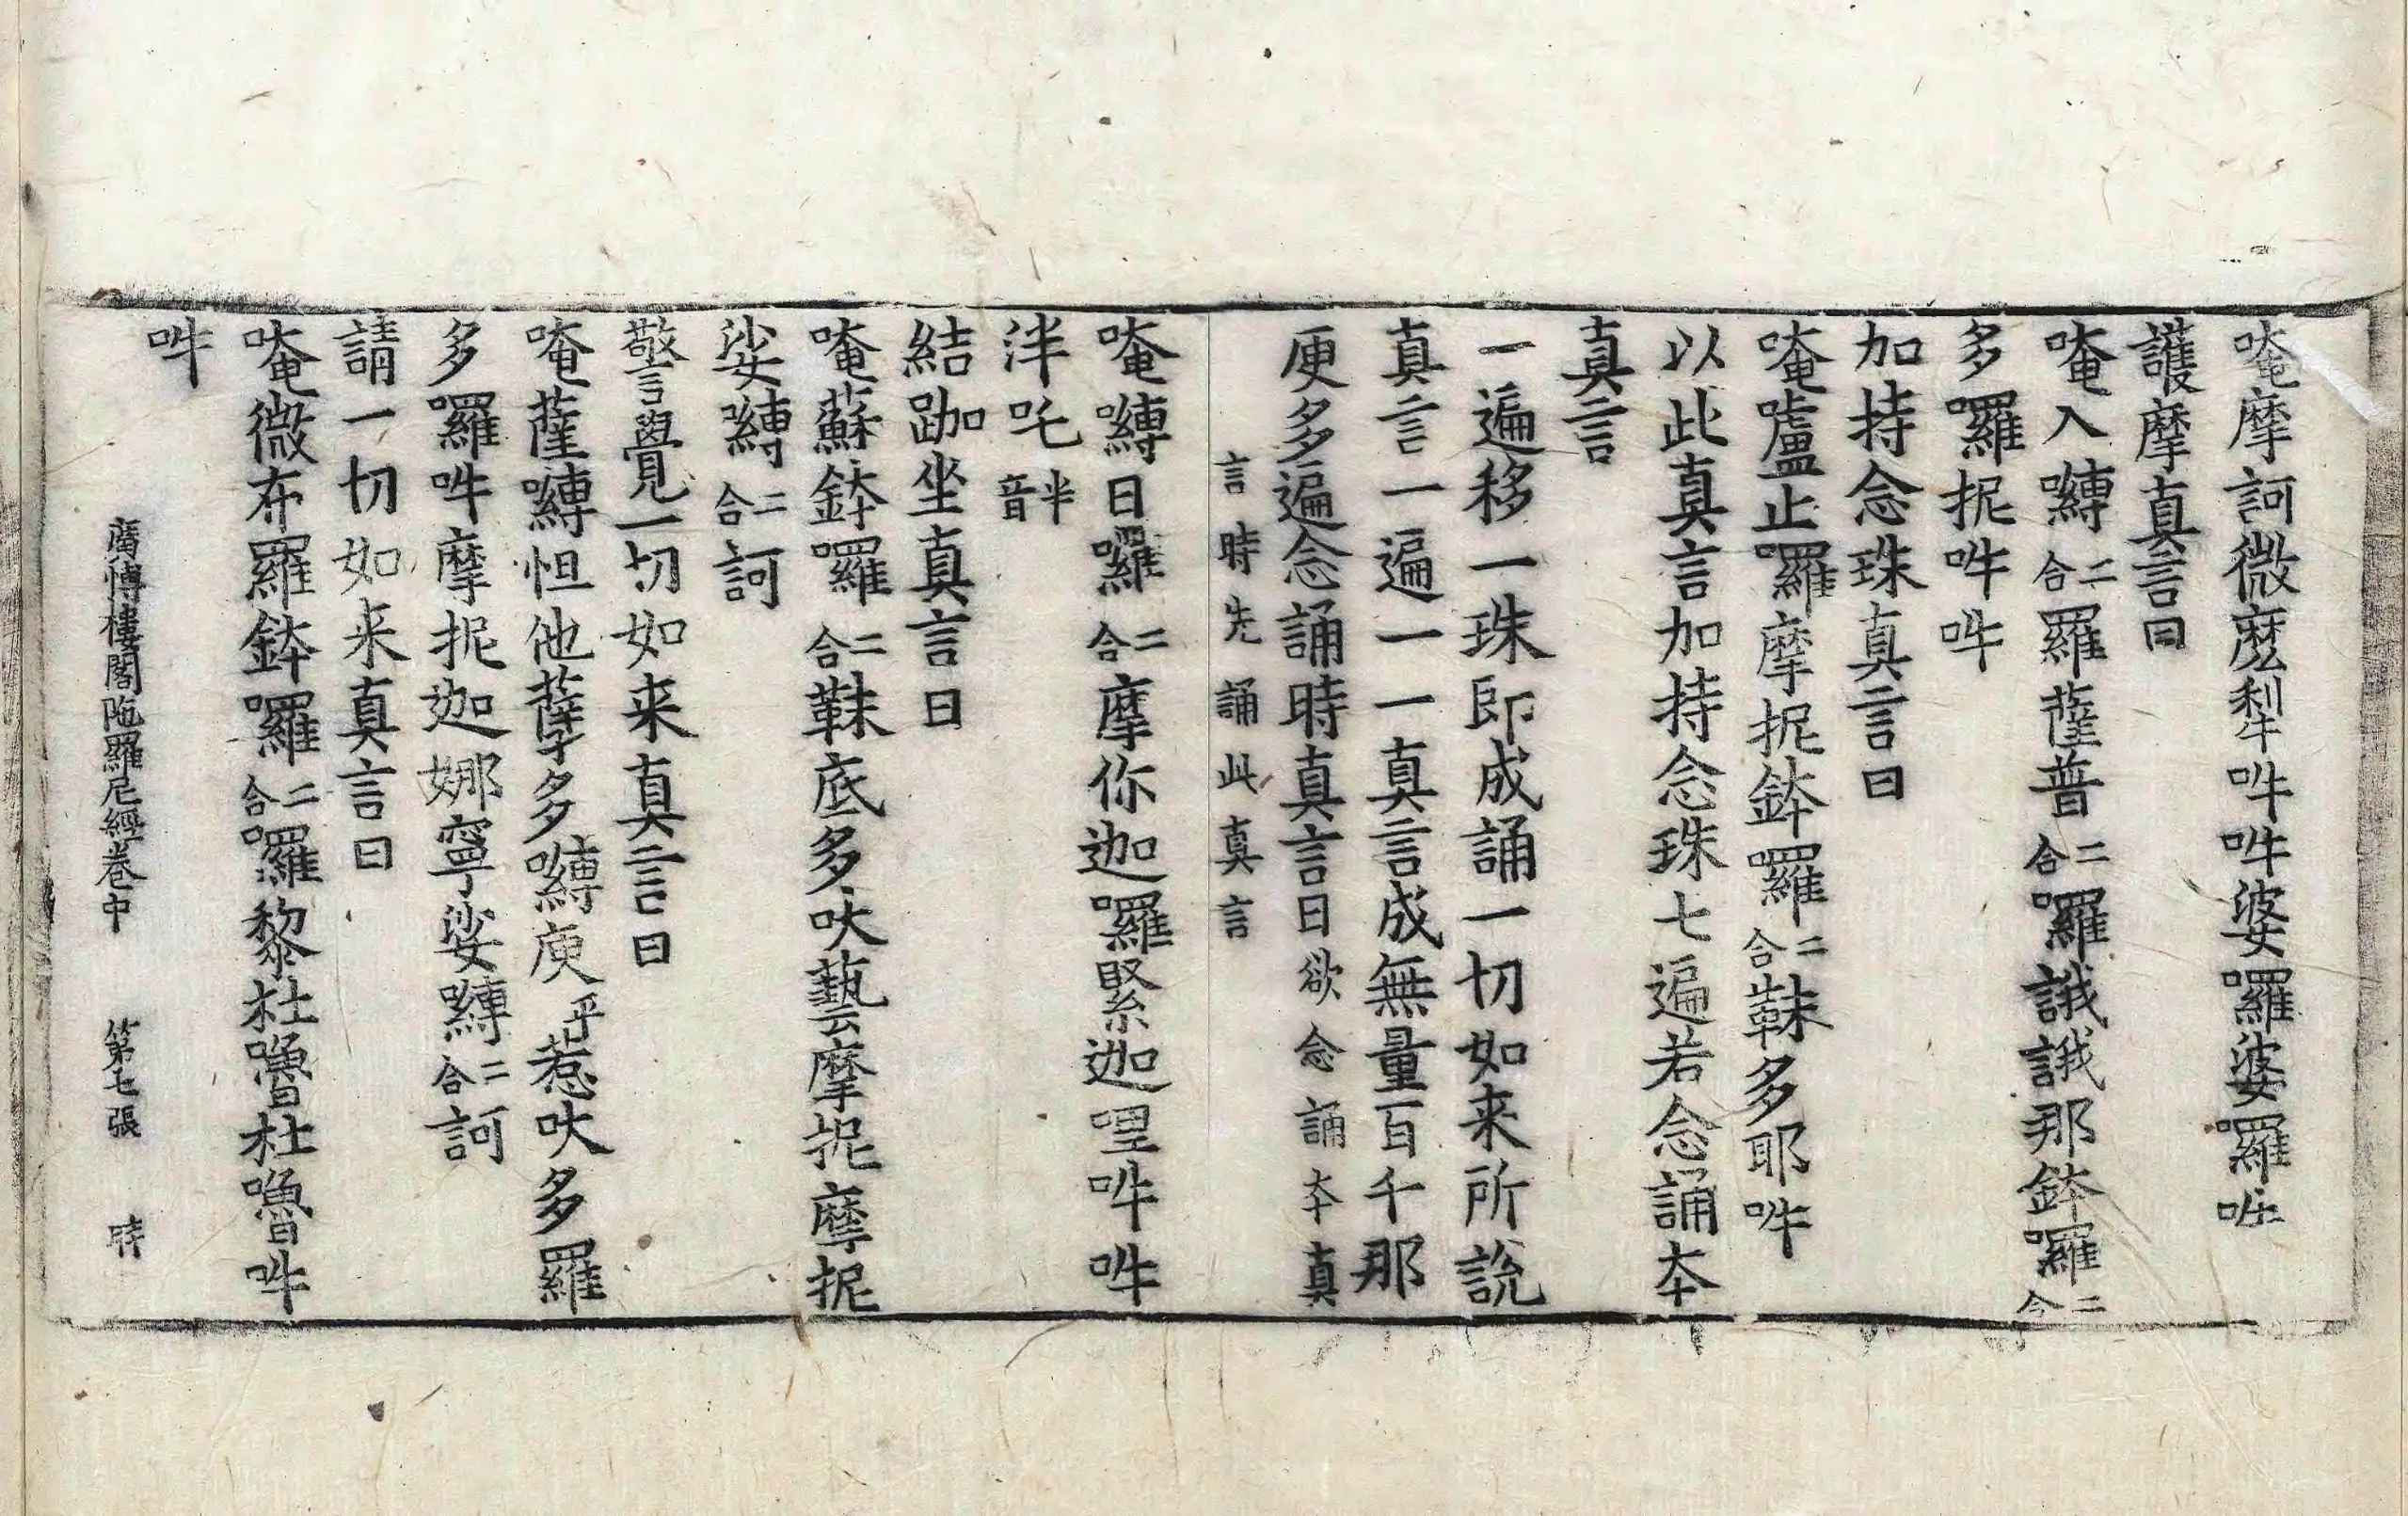 唵摩訶微麽犁吽吽婆囉婆囉吽
護摩真言曰
唵入嚩二合羅薩普二合囉誐誐那鉢囉二合
多囉抳吽吽
加持念珠真言曰
唵嚧止囉摩抳鉢囉二合靺多耶吽
以此真言加持念珠七遍若念誦夲
真言
一遍移一珠即成誦一切如来所說
真言一遍一一真言成無量百千那
庾多遍念誦時真言曰欲念誦夲真
言時先誦此真言
唵嚩日囉二合摩你迦囉緊迦哩吽吽
泮吒半音
結跏坐真言曰
唵蘇鉢囉二合靺底多吠藝摩抳摩抳
娑嚩二合訶
警覺一切如来真言曰
唵薩嚩怛他孽多嚩庾乎惹吠多羅
多囉吽摩抳迦娜寧娑嚩二合訶
請一切如来真言曰
唵微布羅鉢囉二合囉黎杜嚕杜嚕吽
吽
廣愽樓閣陁羅尼經卷中 第七張 時